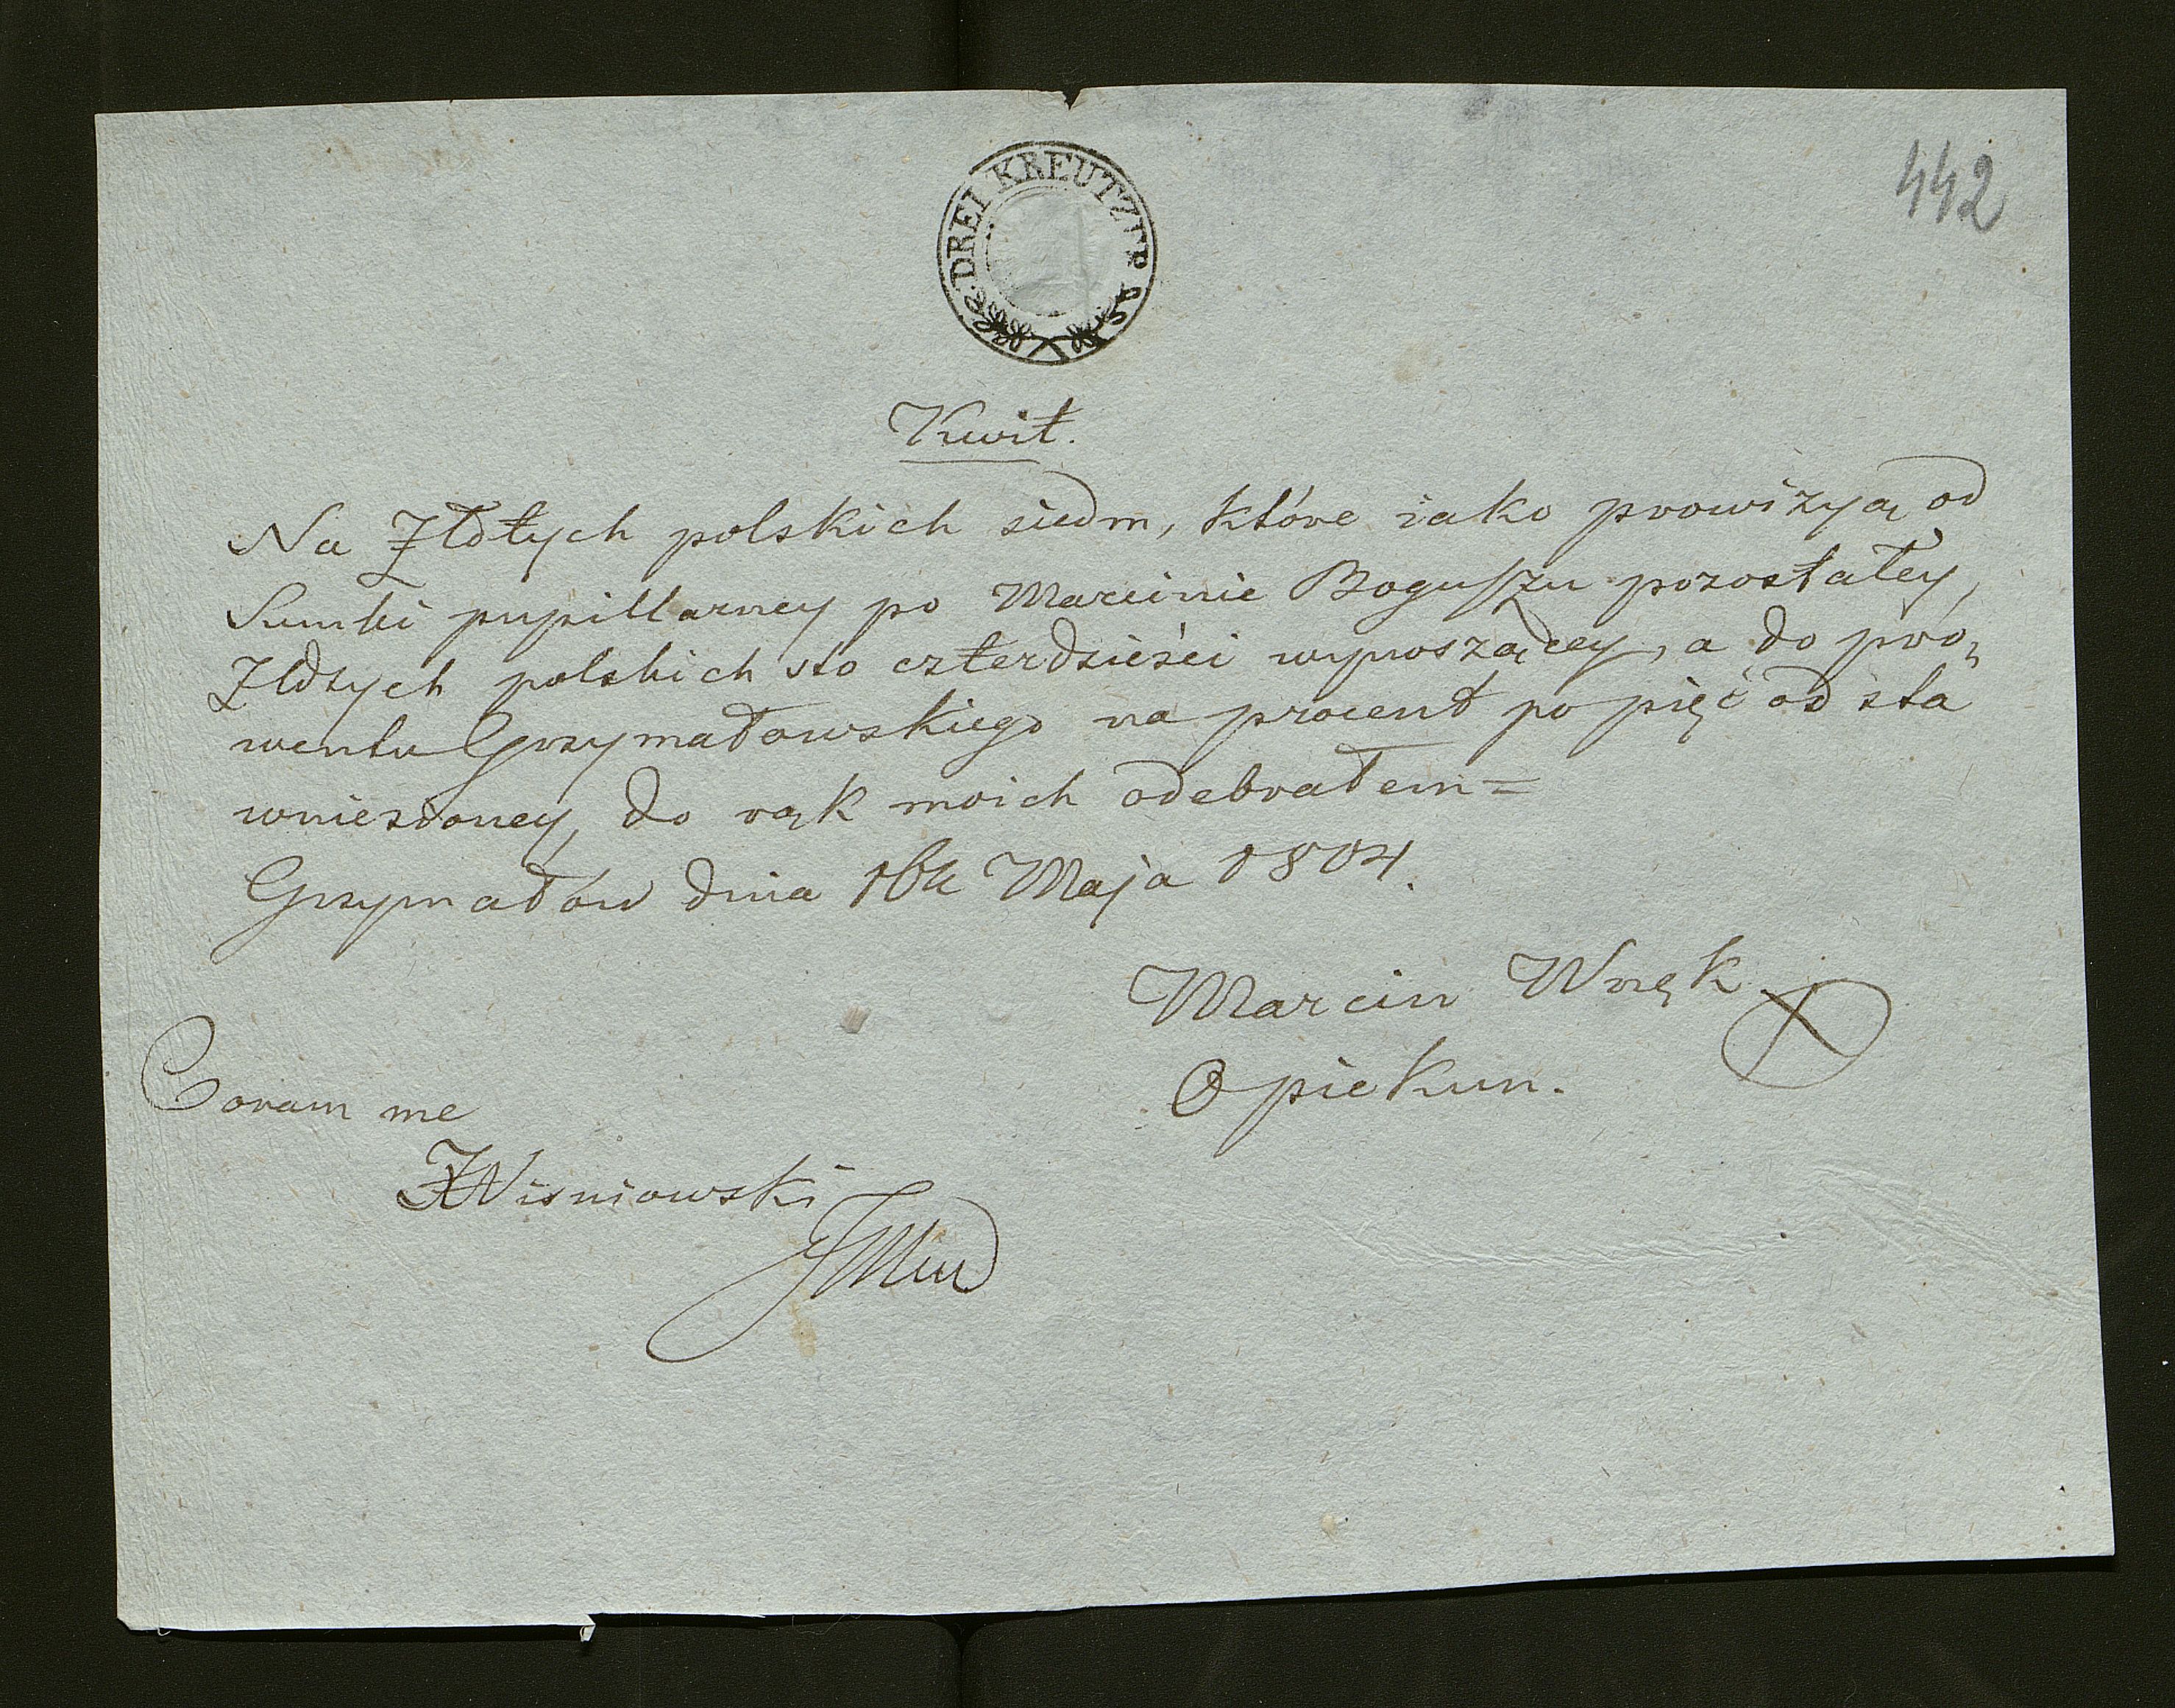 442
DREI KREUTZER
Kwit.
Na Złotych polskich siedm, które iako prowizyą od
Sumki pupillarney po Marcinie Boguszu pozostałey,
Złotych polskich sto czterdzieści wynoszącey, a do pro,
wentu Grzymałowskiego na procent po pięć od sta
wniesioney, do rąk moich odebrałem=
Grzymałów dnia 16t Maja 1804.
Marcin Wnęk X
Opiekun.
Coram me
Wisniowski